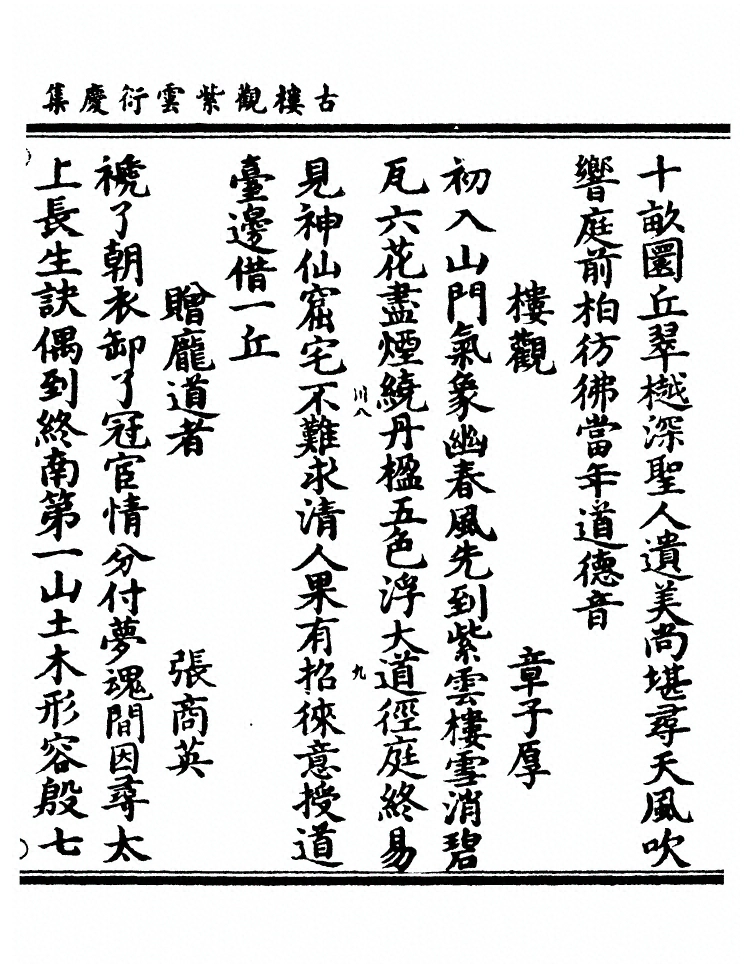 古樓觀紫雲衍慶集
十畝圜丘翠樾深聖人遺美尚堪尋天風吹
響庭前柏彷彿當年道德音
樓觀　章子厚
初入山門氣象幽春風先到紫雲樓雪消碧
瓦六花盡煙繞丹楹五色浮大道徑庭終易
川八　九
見神仙窟宅不難求清人果有招徠意授道
臺邊借一丘
贈龐道者　張商英
褫了朝衣卸了冠宦情分付夢魂間因尋太
上長生訣偶到終南第一山土木形容殷七